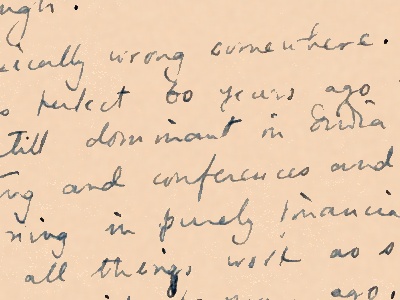 ugh.
ically wrong somewhere.
perfect 60 years ago
till dominant in India
ng and conferences and
ning in purely financia
all things work as s
ago.